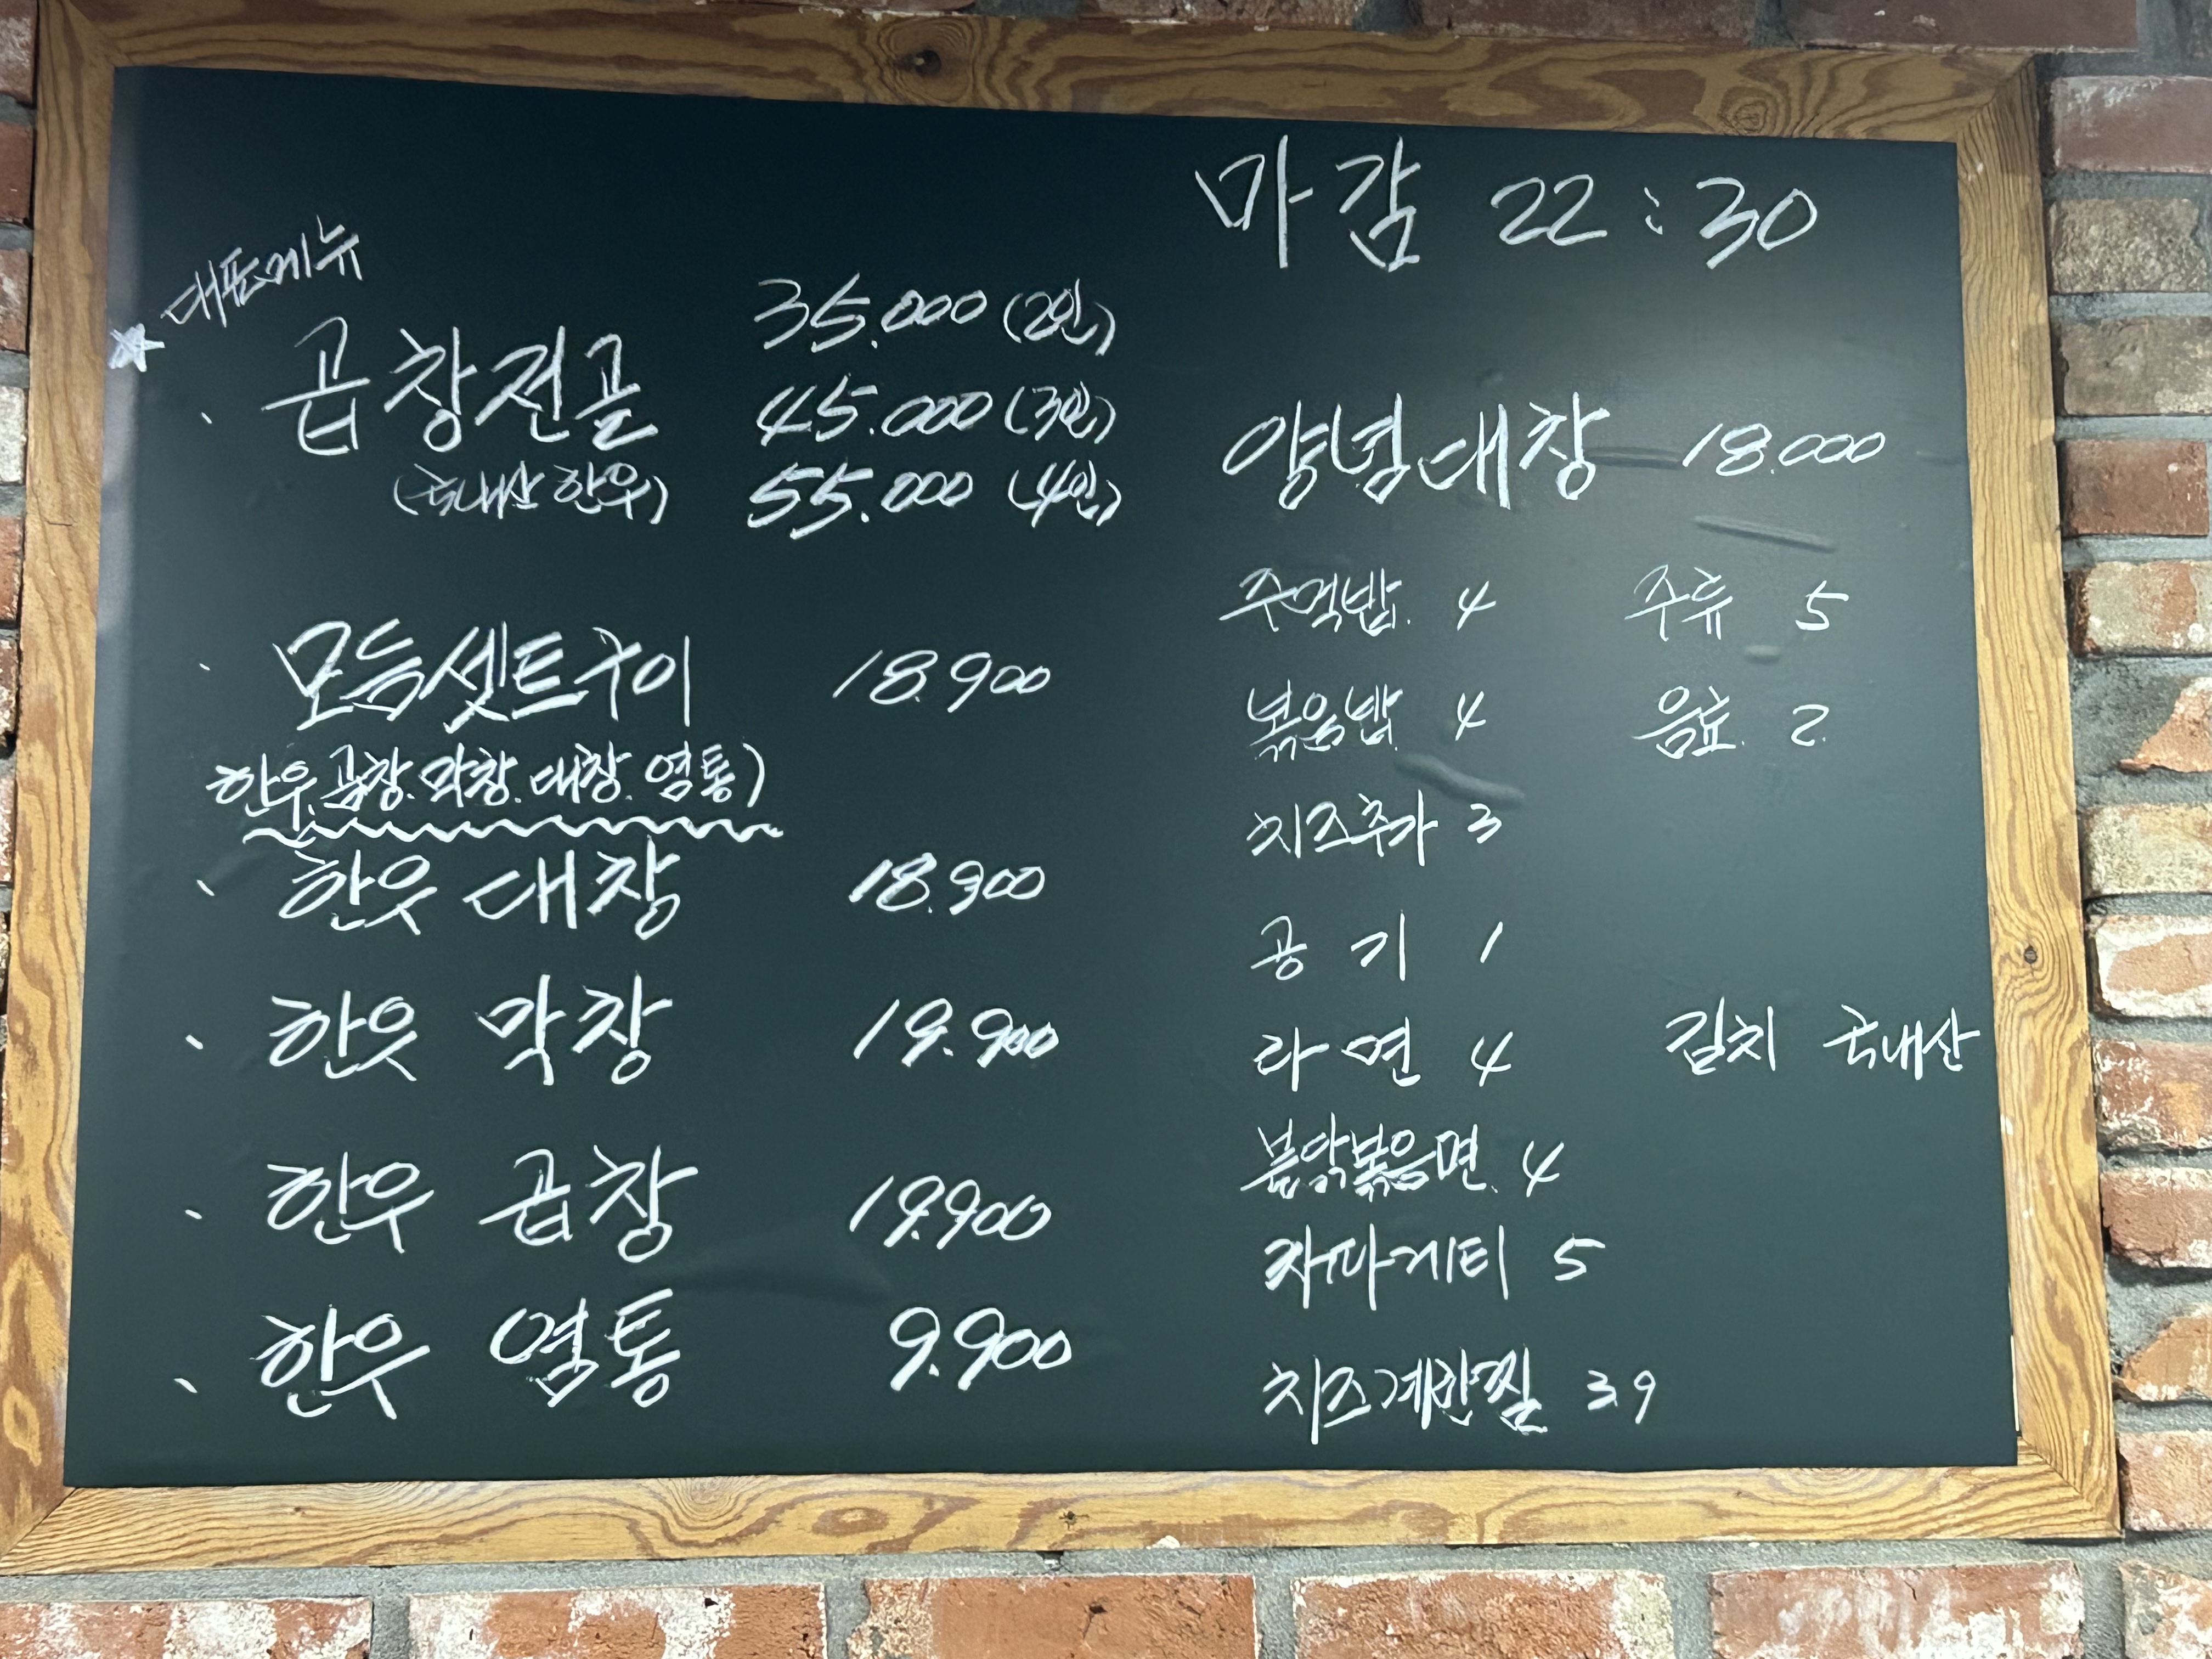 마감 22:30
대표메뉴
★
곱창전골 35.000 (2인)
45.000 (3인)
(국내산 한우) 55.000 (4인)
모듬셋트구이 18.900
한우.곱창.막창.대창.염통)
한우 대창 18.900
한우 막창 19.900
한우 곱창 19.900
한우 염통 9.900
양념대창 18.000
주먹밥. 4 주류 5
볶음밥. 4 음료. 2.
치즈추가 3
공기 1
라면 4 김치 국내산
불닭볶음면. 4
짜파게티 5
치즈계란찜 3.9